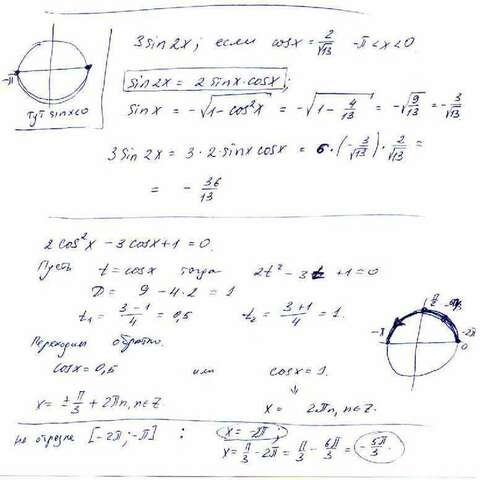 3 sin 2x; если cosx = 2/√13 -π < x < 0
-π
тут sinx<0
sin 2x = 2 sinx · cosx;
sinx = -√(1 - cos²x) = -√(1 - 4/13) = -√(9/13) = -3/√13
3 sin 2x = 3 · 2 · sinx cosx = 6 · (-3/√13) · 2/√13 =
= - 36/13
2cos²x - 3cosx + 1 = 0.
Пусть t = cosx тогда 2t² - 3t + 1 = 0
D = 9 - 4·2 = 1
t₁ = (3-1)/4 = 0,5 t₂ = (3+1)/4 = 1.
-π -2π 0
Переходим обратно.
cosx = 0,5 или cosx = 1.
x = ± π/3 + 2πn, n∈Z. x = 2πn, n∈Z.
на отрезке [-2π; -π] : x = -2π;
x = π/3 - 2π = π/3 - 6π/3 = -5π/3.